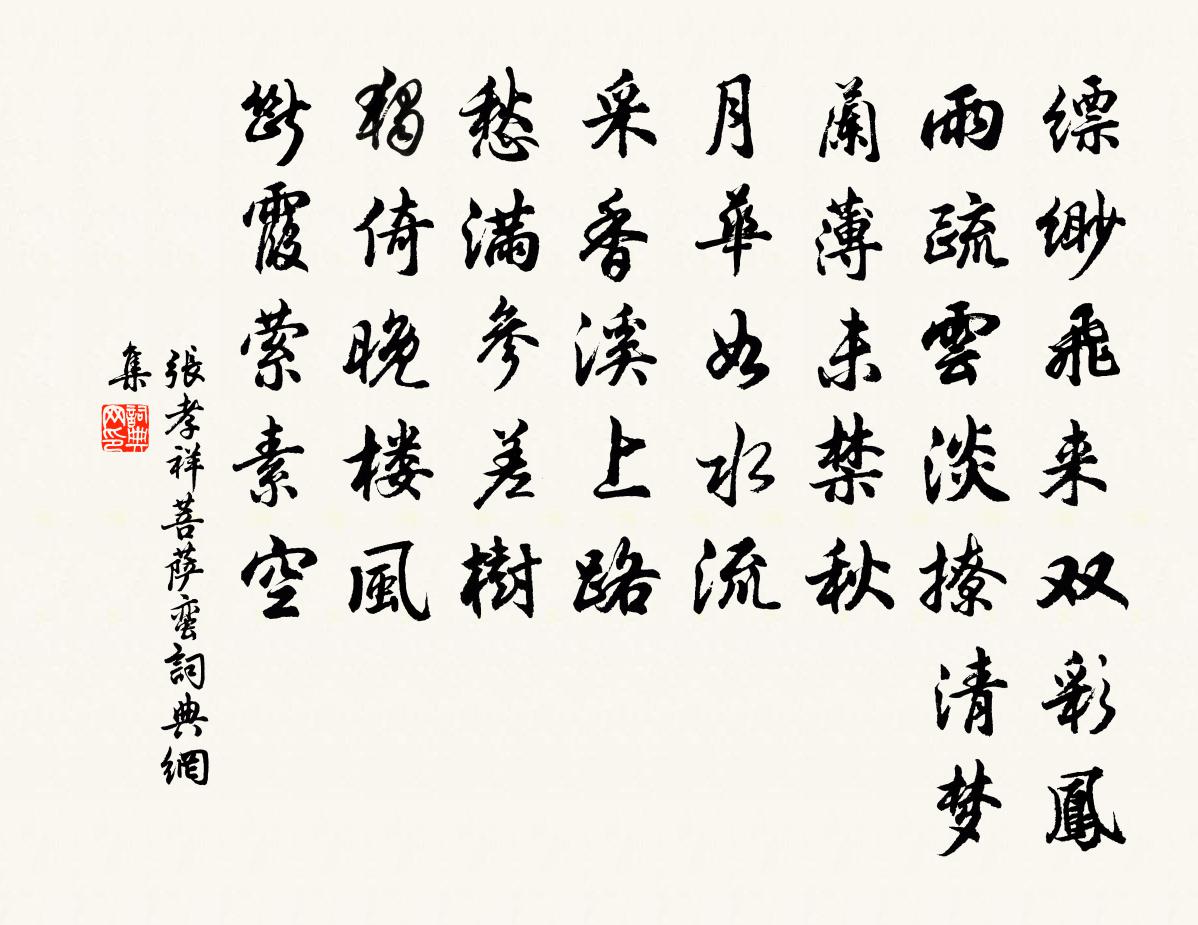 缥缈飛来双彩鳳
雨疏雲淡撩清梦
蘭薄未禁秋
月華如水流
采香溪上路
愁滿參差樹
獨倚晚楼風
斷霞萦素空
張孝祥菩萨蛮詞典網
集
詞典网印